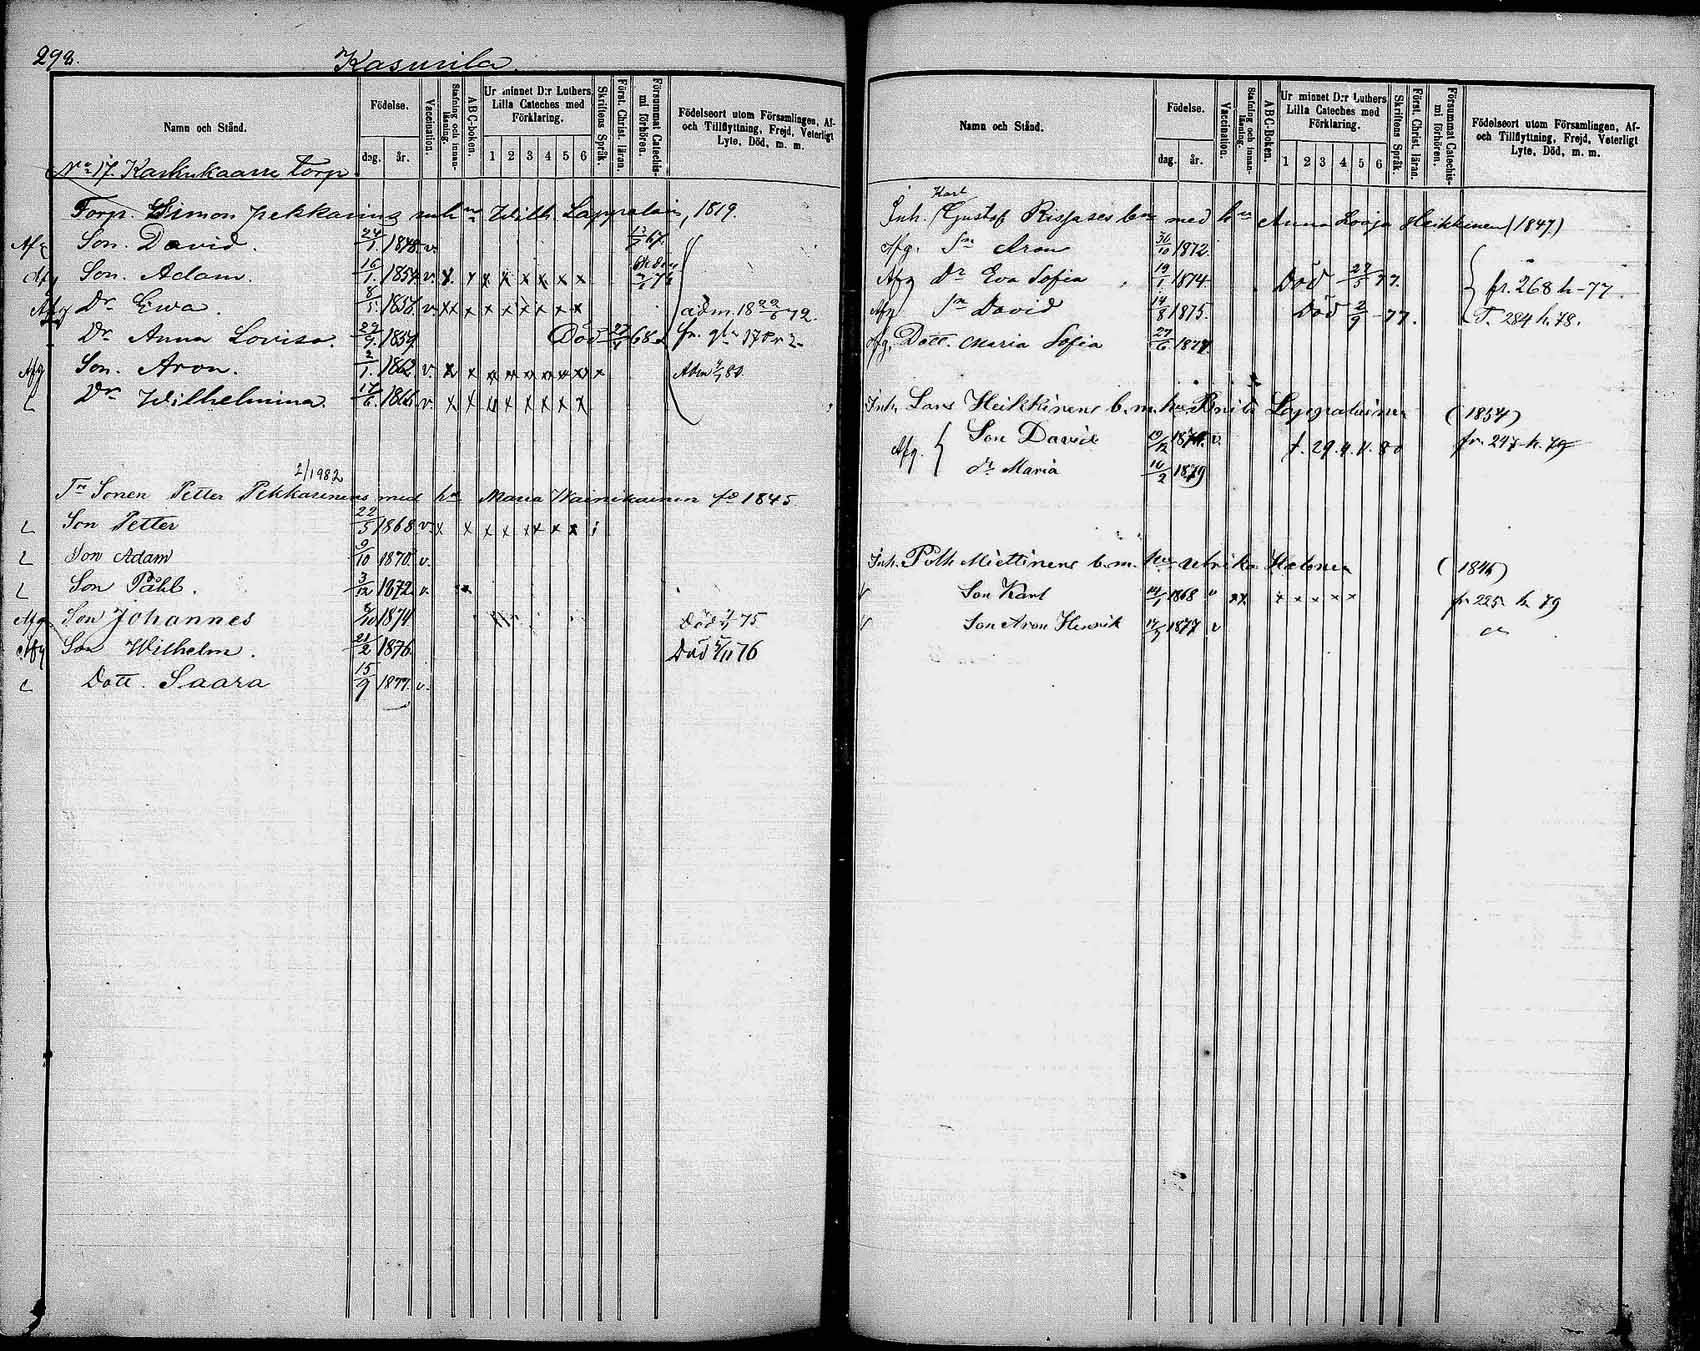 298.
Kasurila
Namn och Stånd.
Födelse.
dag.
år.
Vaccination.
Stafning och innanläsning.
ABC-boken.
Ur minnet D:r Luthers Lilla Cateches med Förklaring.
1 2 3 4 5 6
Skriftens Språk.
Först. Christ. läran.
Försummat Catechismi förhören.
Födelseort utom Församlingen, Af- och Tillflyttning, Frejd, Veterligt Lyte, Död, m. m.
No 17. Torp
Torp. Simon Pekkarinens m. hu Wilh. Lappalain, 1819.
Afg Son. David. 24/1 1848 v. 67.
Afg Son. Adam. 16/1 1854 v. x x x x x x x x
Afg Dr Ewa. 8/1 1858. v. x x x x x x x x adm. 18 22/6 72.
Dr Anna Lovisa. 1859 Död 68
Afg Son. Aron. 2/1 1862 v. x x x x x x x x x Adm 80.
L Dr Wilhelmina 17/6 1866 v. x x x x x x x x
2/1982
Tn Sonen Petter Pekkarinens med hu Maria Wainikainen fd 1845
L Son Petter 22/5 1868 v. x x x x x x x x
L Son Adam 9/10 1870 v.
L Son Påhl. 3/12 1872 v.
Afg Son Johannes 6/10 1874 Död 75
Afg Son Wilhelm. 21/2 1876 Död 76
L Dott. Saara 15/9 1877. v.
Namn och Stånd.
Födelse.
dag.
år.
Vaccination.
Stafning och innanläsning.
ABC-Boken.
Ur minnet D:r Luthers Lilla Cateches med Förklaring.
1 2 3 4 5 6
Skriftens Språk.
Först. Christ. läran.
Försummat Catechismi förhören.
Födelseort utom Församlingen, Af- och Tillflyttning, Frejd, Veterligt Lyte, Död, m. m.
Karl
Inh. Gustaf med hu Anna Lovisa Heikkinen (1847)
Afg. Sn Aron 30/10 1872.
Afg Dr Eva Sofia 19/1 1874 Död 27/5 77. fr. 268 h. 77
Afg Sn David 14/8 1875. Död 2/9 77. T. 284 h. 78.
Afg. Dott. Maria Sofia 27/6 1877.
Inh. Lars Heikkinens b. m. hu Lappalainen (1854)
Afg. Son David v. f. 29. 4. 80 fr. 247 h. 79
dr Maria 10/2 1879
Inh. Påhl Miettinens b. m. hu Ulrika Halonen (1846)
v Son Karl 14/1 1868 v x x x x x x x fr 225 h 79
v Son Aron Henrik 1877 v